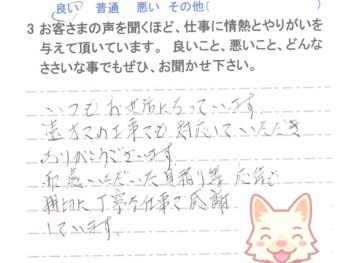 良い 普通 悪い その他( )
3 お客さまの声を聞くほど、仕事に情熱とやりがいを
与えて頂いています。 良いこと、悪いこと、どんな
ささいな事でもぜひ、お聞かせ下さい。
いつもお世話になっています。
遠方での工事でも対応していただき
ありがとうございます。
いただいた見積り等 応往も
親切、丁寧な仕事で感謝
しています。